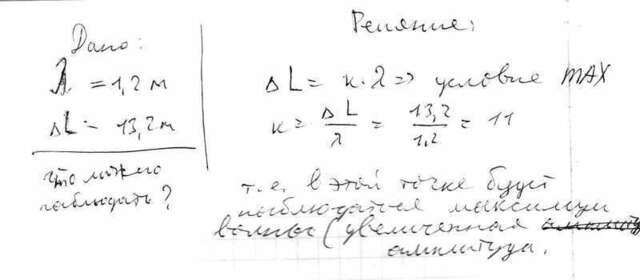 Дано:
λ = 1,2 м
ΔL = 13,2 м
Что можно
наблюдать?
Решение:
ΔL = к·λ => условие MAX
к = ΔL/λ = 13,2/1,2 = 11
т.е. в этой точке будет
наблюдаться максимум
волны (увеличенная
амплитуда.